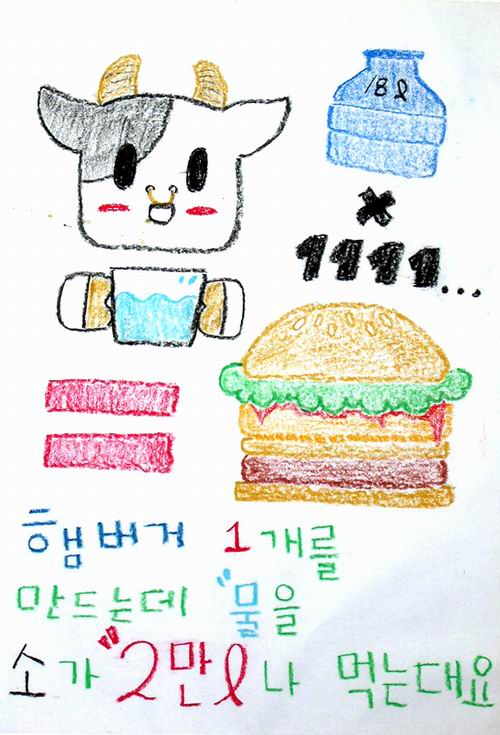 18ℓ
×
1111...
햄버거 1개를
만드는데 "물을
소가 "2만ℓ나 먹는대요